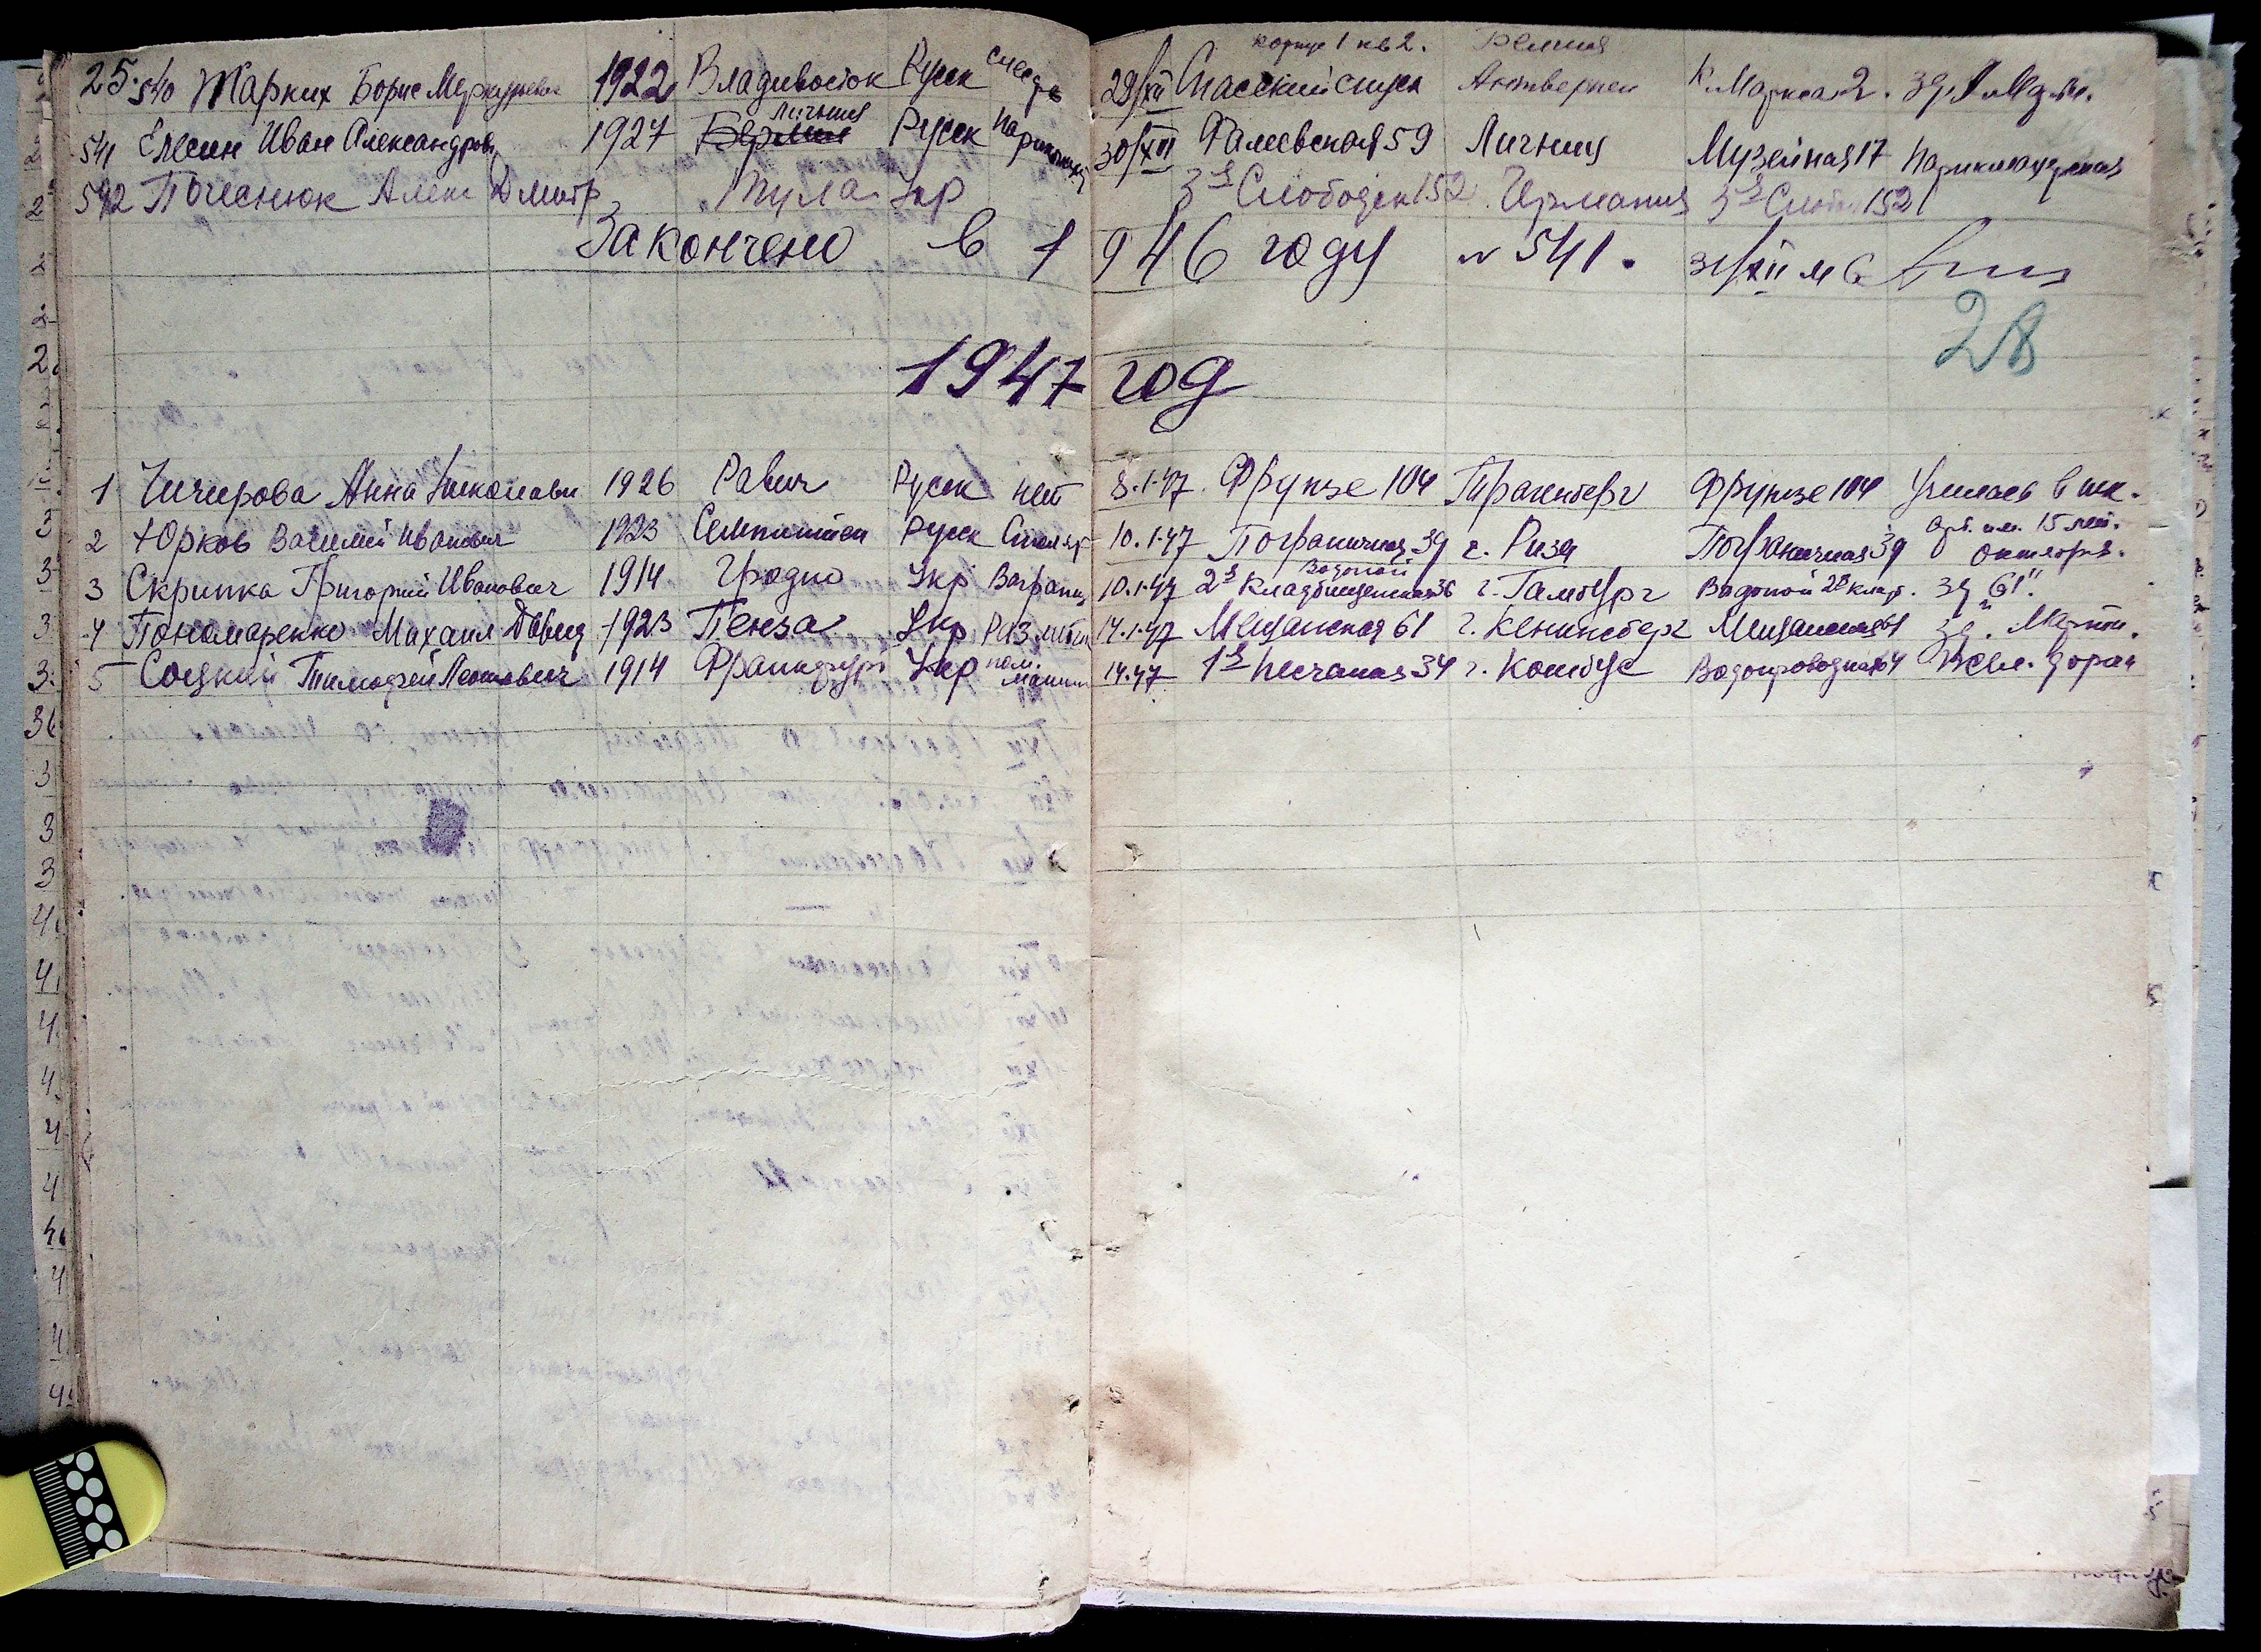 25. 540 Жарких Борис Меркурьевич 1922 Владивосток Русск слесарь 29/XII Спасский спуск корпус 1 кв 2. Бельгия Антверпен К. Маркса 2. зд. I Мадм.
541 Елесин Иван Александров 1927 Берлин Лигниц Русск парикмахер 30/XII Фалеевская 59 Лигниц Музейная 17 Парикмахерская
542 Почеснюк Алек Дмитр Тула Укр 3я Слободск 152 Германия 3я Слобо 152
Закончено в 1946 году № 541. 31/XII 46
28
1947 год
1 Чичирова Анна Николаевн 1926 Равич Русск нет 8.1.47 Фрунзе 104 Фрунзе 104 Училась в шк.
2 Юрков Василий Иванович 1923 Русск Столяр 10.1.47 Пограничная 39 г. Риза Пограничная 39 Арт. им. 15 лет. октября.
3 Скрипка Григорий Иванович 1914 Гродно Укр 10.1.47 2я Кладбищенская 36 Водопой г. Гамбург Водопой 2я клад. зд "61".
4 Пономаренко Михаил Давид 1923 Пенза Укр 14.1.47 Мещанская 61 г. Кенинсберг Мещанская 61 зд. Марти.
5 Соцкий Тимофей Леонтович 1914 Франкфурт Укр пом. машин 14.47 1я Песчаная 34 г. Котбус Водопроводная 64 Жел. дорога